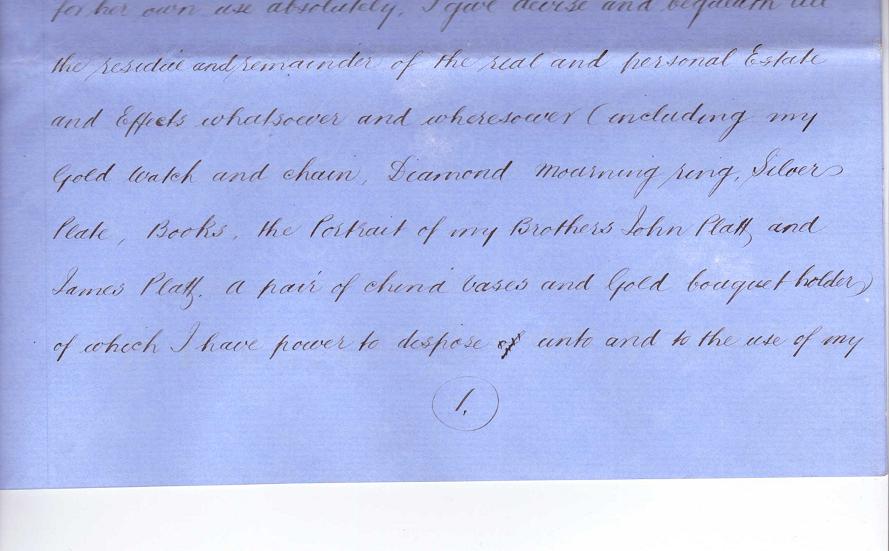 for her own use absolutely. I give devise and bequeath all
the residue and remainder of the real and personal Estate
and Effects whatsoever and wheresoever (including my
Gold Watch and chain, Diamond Mourning ring, Silver
Plate, Books, the Portrait of my Brothers John Platt and
James Platt. a pair of china Vases and Gold bouquet holder)
of which I have power to dispose of unto and to the use of my
1.